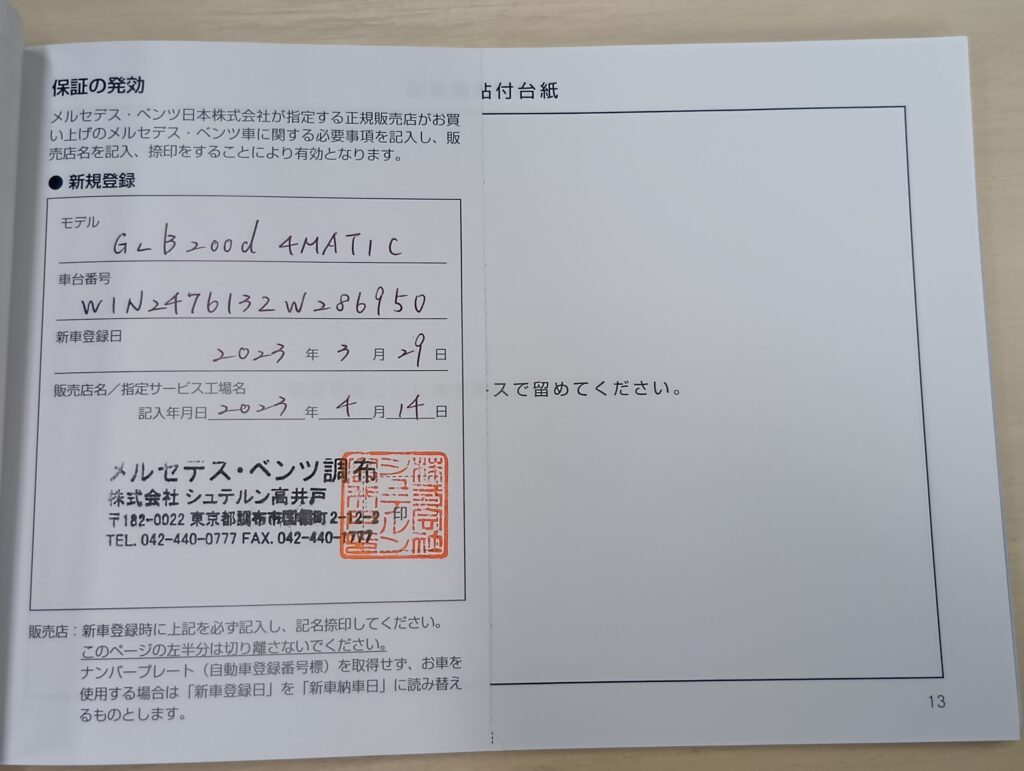 保証の発効
メルセデス・ベンツ日本株式会社が指定する正規販売店がお買
い上げのメルセデス・ベンツ車に関する必要事項を記入し、販
売店名を記入、捺印をすることにより有効となります。
● 新規登録
モデル
GLB200d 4MATIC
車台番号
W1N2476132W286950
新車登録日
2023 年 3 月 29 日
販売店名／指定サービス工場名
記入年月日 2023 年 4 月 14 日
メルセデス・ベンツ調布
株式会社 シュテルン高井戸
〒182-0022 東京都調布市国領町2-12-2
TEL. 042-440-0777 FAX. 042-440-1777
印
販売店：新車登録時に上記を必ず記入し、記名捺印してください。
このページの左半分は切り離さないでください。
ナンバープレート（自動車登録番号標）を取得せず、お車を
使用する場合は「新車登録日」を「新車納車日」に読み替え
るものとします。
付台紙
スで留めてください。
13